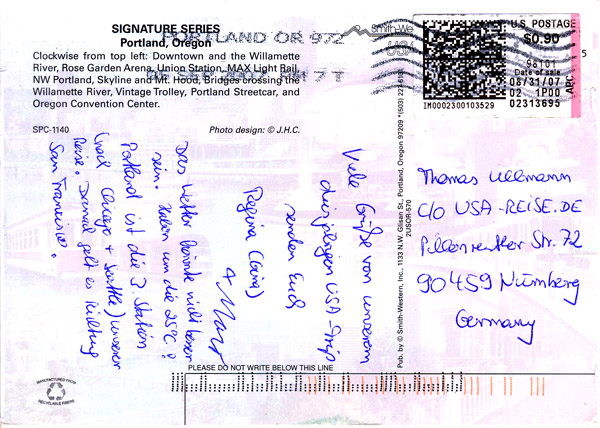 SIGNATURE SERIES
Portland, Oregon
Clockwise from top left: Downtown and the Willamette
River, Rose Garden Arena, Union Station, MAX Light Rail,
NW Portland, Skyline and Mt. Hood, Bridges crossing the
Willamette River, Vintage Trolley, Portland Streetcar, and
Oregon Convention Center.
SPC-1140
Photo design: © J.H.C.
PORTLAND OR 972
2007 PM 7 T
U.S. POSTAGE
$0.90
98101
Date of sale
08/31/07
02 1P00
02313695
IM0002300103529
APC
5
Viele Grüße von unserem
diesjährigen USA-Trip
senden Euch
Regina
+
Das Wetter könnte nicht besser
sein. Haben um die 25°C!
Portland ist die 3 Station
(nach Chicago + Seattle) unserer
Reise. Diesmal geht es Richtung
San Francisco.
Pub. by © Smith-Western, Inc., 1133 N.W. Glisan St., Portland, Oregon 97209
2USOR-570
Thomas Ullmann
c/o USA-REISE.DE
Pillenreuther Str. 72
90459 Nürnberg
Germany
PLEASE DO NOT WRITE BELOW THIS LINE
MANUFACTURED FROM
RECYCLABLE FIBERS